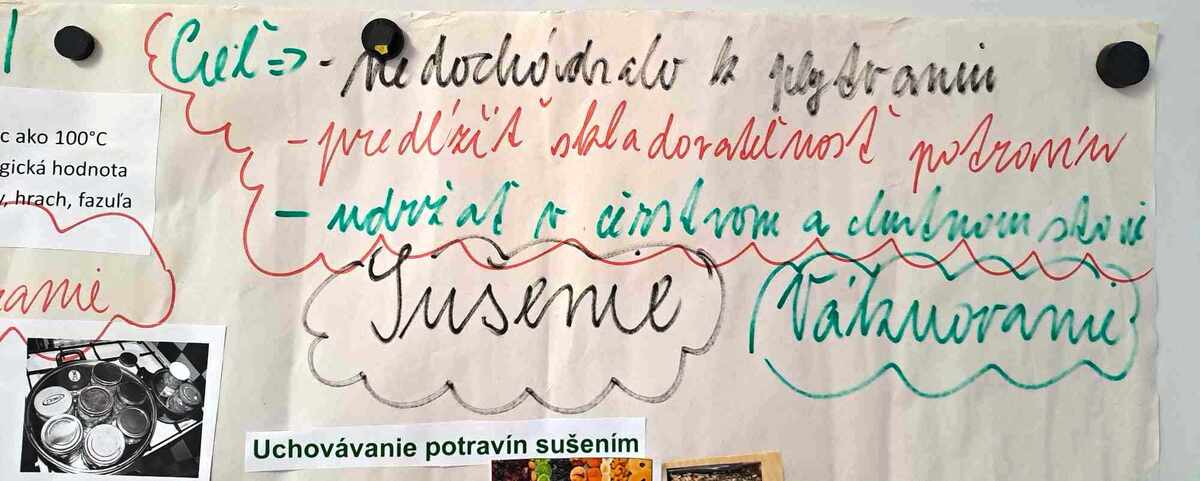 Cieľ => - nedochádzalo k plytvaniu
- predĺžiť skladovateľnosť potravín
- udržať v čerstvom a chutnom stave
c ako 100°C
gická hodnota
, hrach, fazuľa
Sušenie
Vákuovanie
ranie
Uchovávanie potravín sušením